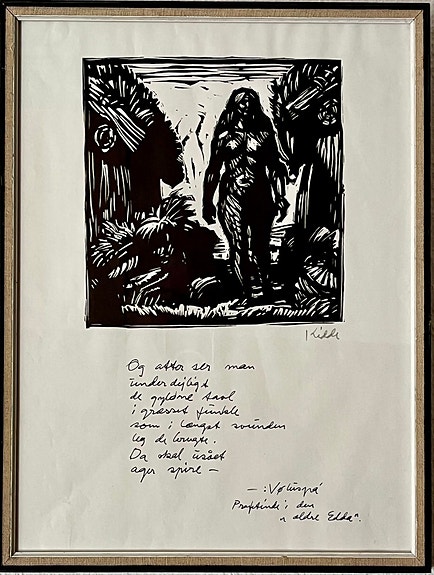 Kidde
Og atter ser man
underdejligt
de gyldne tavl
i græsset funkle
som i længst svunden
leg de brugte.
Da skal usået
ager spire —
— : Vølúspá
i den
"ældre Edda".